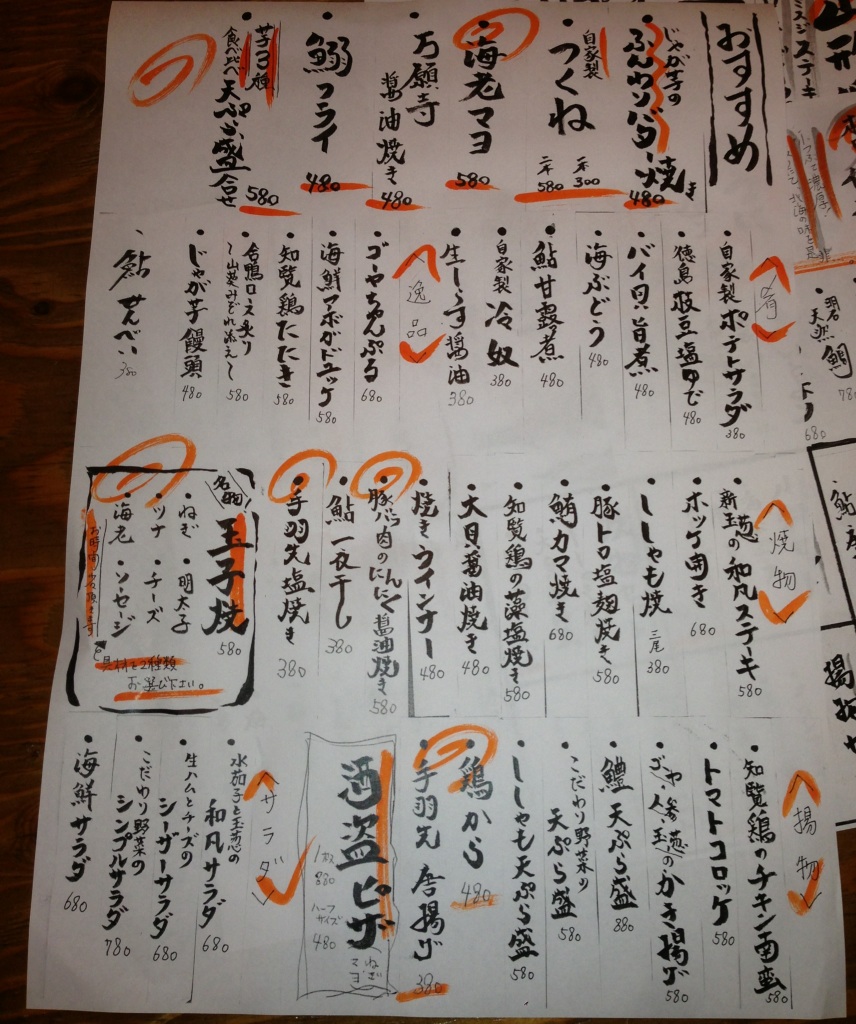 おすすめ
じゃが芋の
ふんわりバター焼き
480
自家製
つくね
一本 300
二本 580
海老マヨ
580
万願寺
醤油焼き
480
鰯フライ
480
芋3種
食べ比べ天ぷら盛合せ
580
肴
自家製ポテトサラダ
380
徳島枝豆塩ゆで
480
バイ貝旨煮
480
海ぶどう
480
鮎甘露煮
480
自家製冷奴
380
生しらす醤油
380
逸品
ゴーヤちゃんぷる
680
海鮮アボガドユッケ
580
知覧鶏たたき
580
合鴨ロース炙り
〜山葵みぞれ添え〜
580
じゃが芋饅頭
480
鮎せんべい
380
焼物
新玉葱の和风ステーキ
580
ホッケ開き
680
ししゃも焼
三尾
380
豚トロ塩麹焼き
580
鮪カマ焼き
680
知覧鶏の藻塩焼き
580
大貝醤油焼き
480
焼きウインナー
480
豚バラ肉のにんにく醤油焼き
580
鮎一夜干し
380
手羽先塩焼き
380
名物
玉子焼
580
・ねぎ ・明太子
・ツナ ・チーズ
・海老 ・ソーセージ
具材を2種類
お選び下さい。
お時間
揚物
知覧鶏のチキン南蛮
580
トマトコロッケ
580
ゴーヤ・人参・玉葱のかき揚げ
580
鱧天ぷら盛
880
こだわり野菜の
天ぷら盛
580
ししゃも天ぷら盛
580
鶏から
480
手羽先唐揚げ
380
酒盗ピザ
1枚
880
ハーフ
サイズ
480
ねぎ
マヨ
サラダ
水茄子と玉葱の
和风サラダ
680
生ハムとチーズの
シーザーサラダ
680
こだわり野菜の
シンプルサラダ
780
海鮮サラダ
680
ミスジステーキ
山形
天然鯛
680
鮎
揚